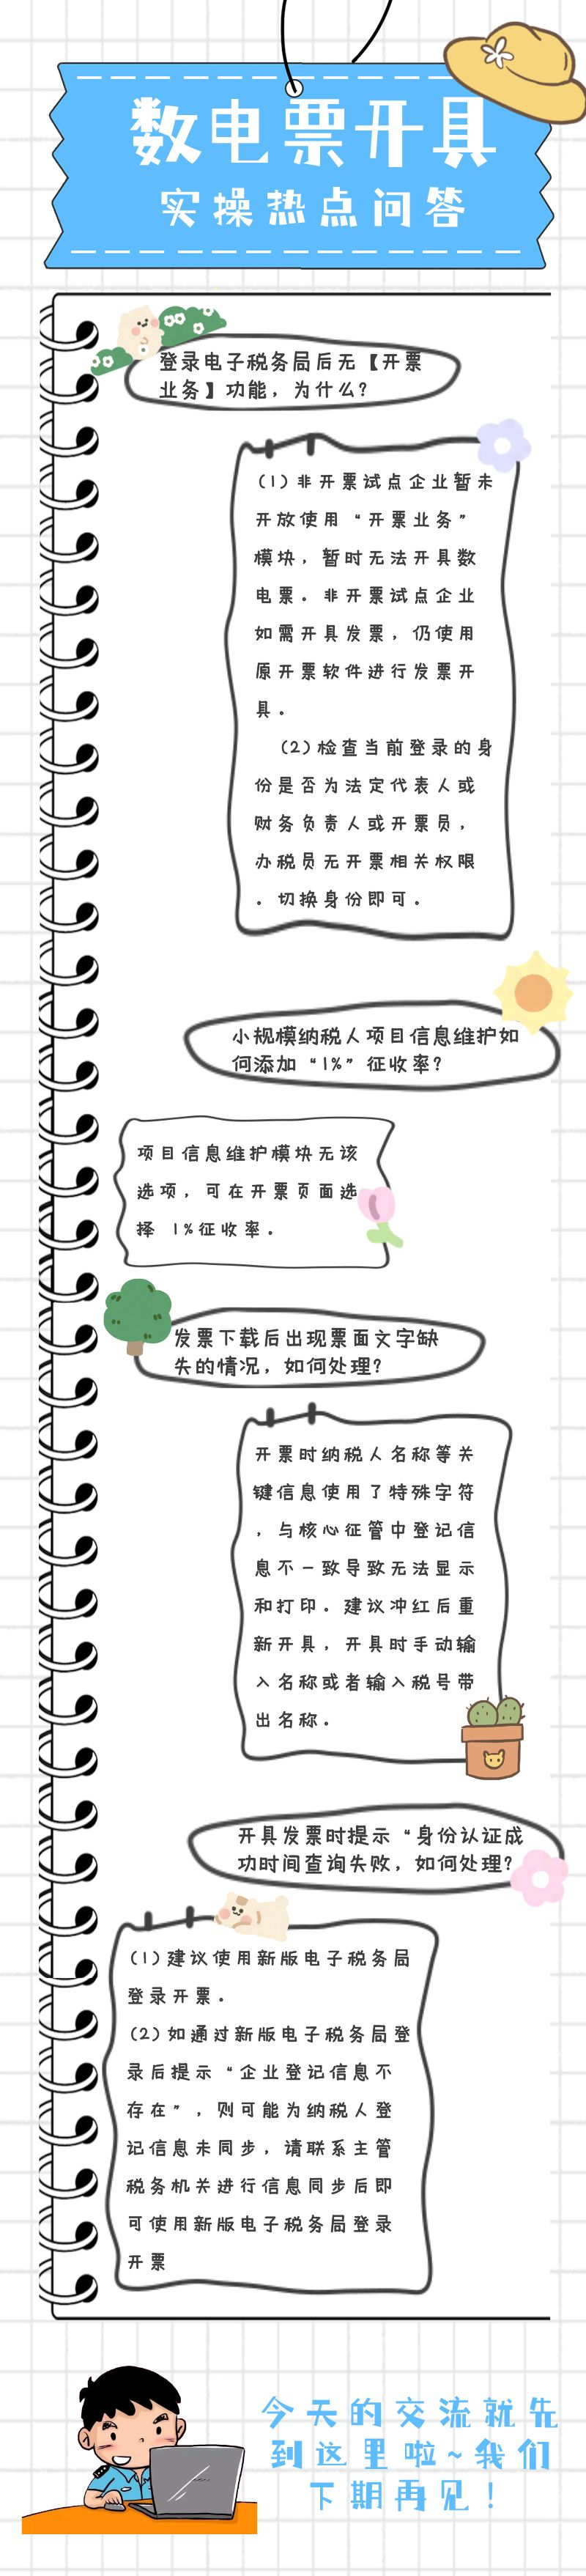 数电票开具
实操热点问答
登录电子税务局后无【开票
业务】功能，为什么？
（1）非开票试点企业暂未
开放使用“开票业务”
模块，暂时无法开具数
电票。非开票试点企业
如需开具发票，仍使用
原开票软件进行发票开
具。
（2）检查当前登录的身
份是否为法定代表人或
财务负责人或开票员，
办税员无开票相关权限
。切换身份即可。
小规模纳税人项目信息维护如
何添加“1%”征收率？
项目信息维护模块无该
选项，可在开票页面选
择 1%征收率。
发票下载后出现票面文字缺
失的情况，如何处理？
开票时纳税人名称等关
键信息使用了特殊字符
，与核心征管中登记信
息不一致导致无法显示
和打印。建议冲红后重
新开具，开具时手动输
入名称或者输入税号带
出名称。
开具发票时提示“身份认证成
功时间查询失败，如何处理？
（1）建议使用新版电子税务局
登录开票。
（2）如通过新版电子税务局登
录后提示“企业登记信息不
存在”，则可能为纳税人登
记信息未同步，请联系主管
税务机关进行信息同步后即
可使用新版电子税务局登录
开票
今天的交流就先
到这里啦~我们
下期再见！